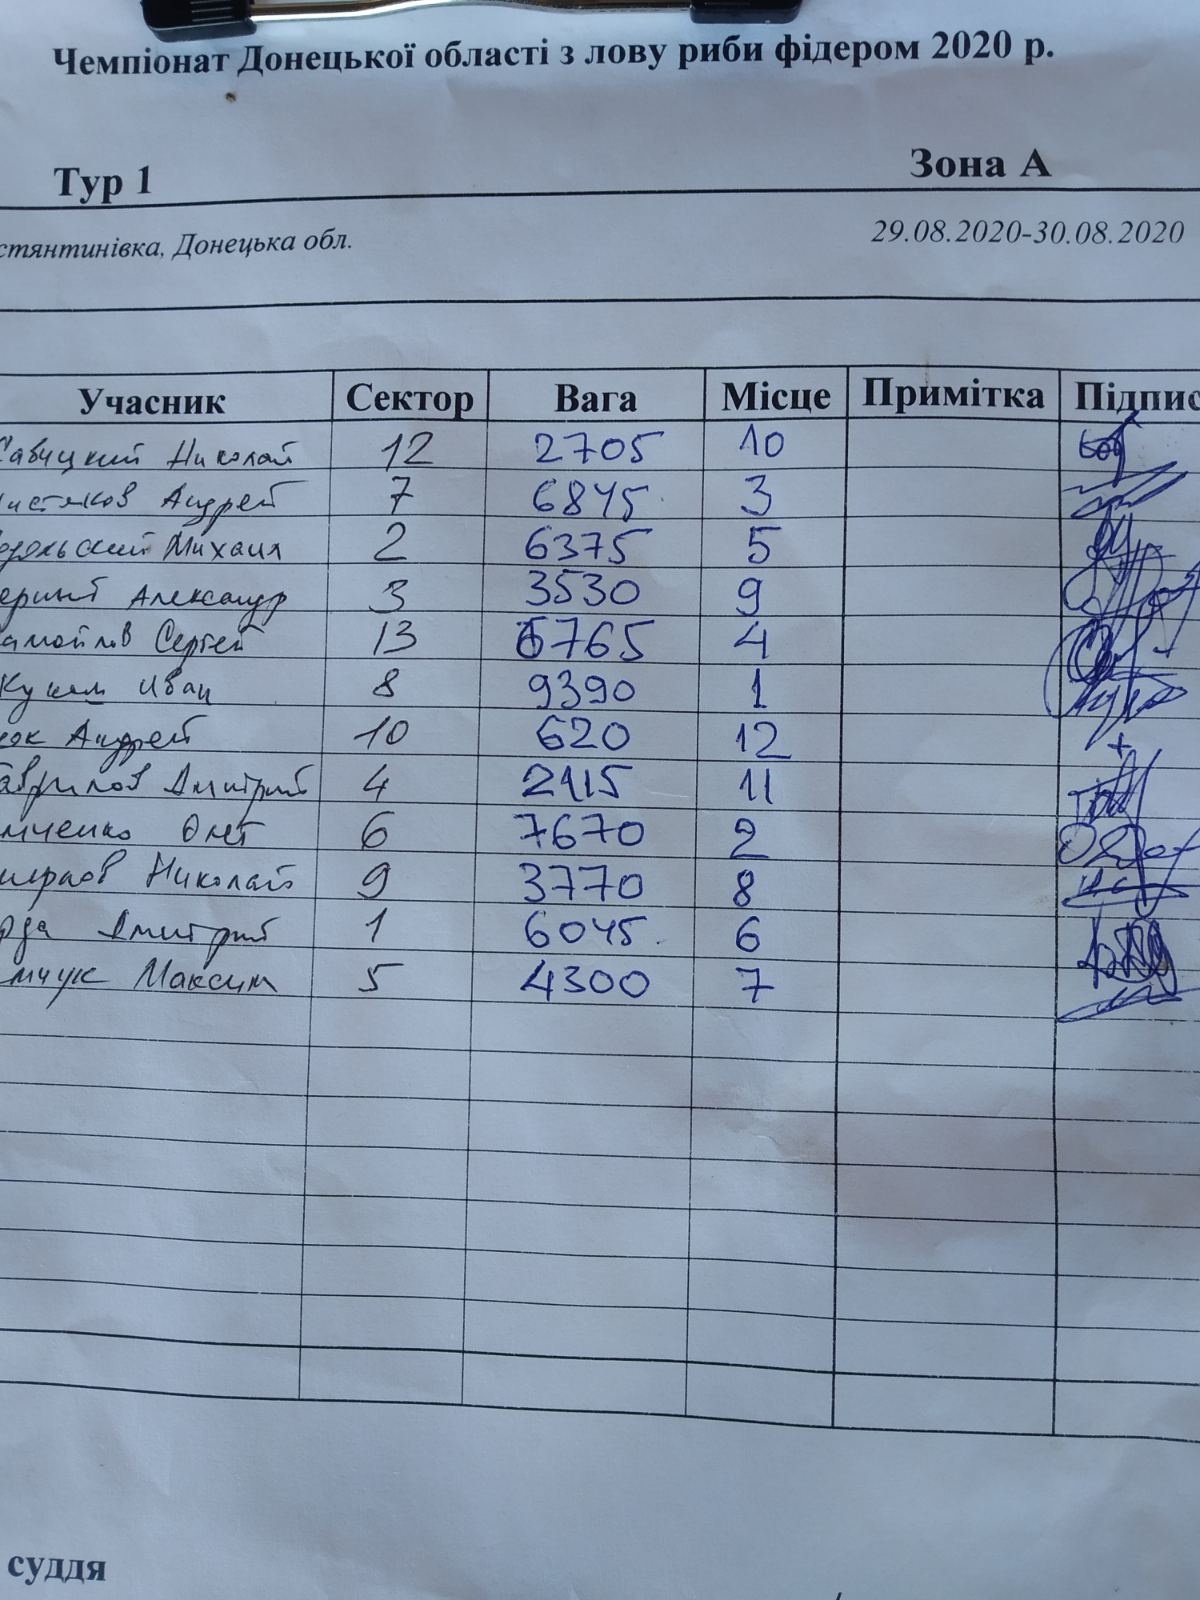 Чемпіонат Донецької області з лову риби фідером 2020 р.
Тур 1 Зона А
стянтинівка, Донецька обл. 29.08.2020-30.08.2020
Учасник Сектор Вага Місце Примітка Підпис
Савицкий Николай 12 2705 10
истяков Андрей 7 6845 3
одольский Михаил 2 6375 5
ерный Александр 3 3530 9
амойлов Сергей 13 6765 4
Иван 8 9390 1
Андрей 10 620 12 +
аврилов Дмитрий 4 2415 11
мченко Олег 6 7670 2
Николай 9 3770 8
рда Дмитрий 1 6045 6
мчук Максим 5 4300 7
суддя